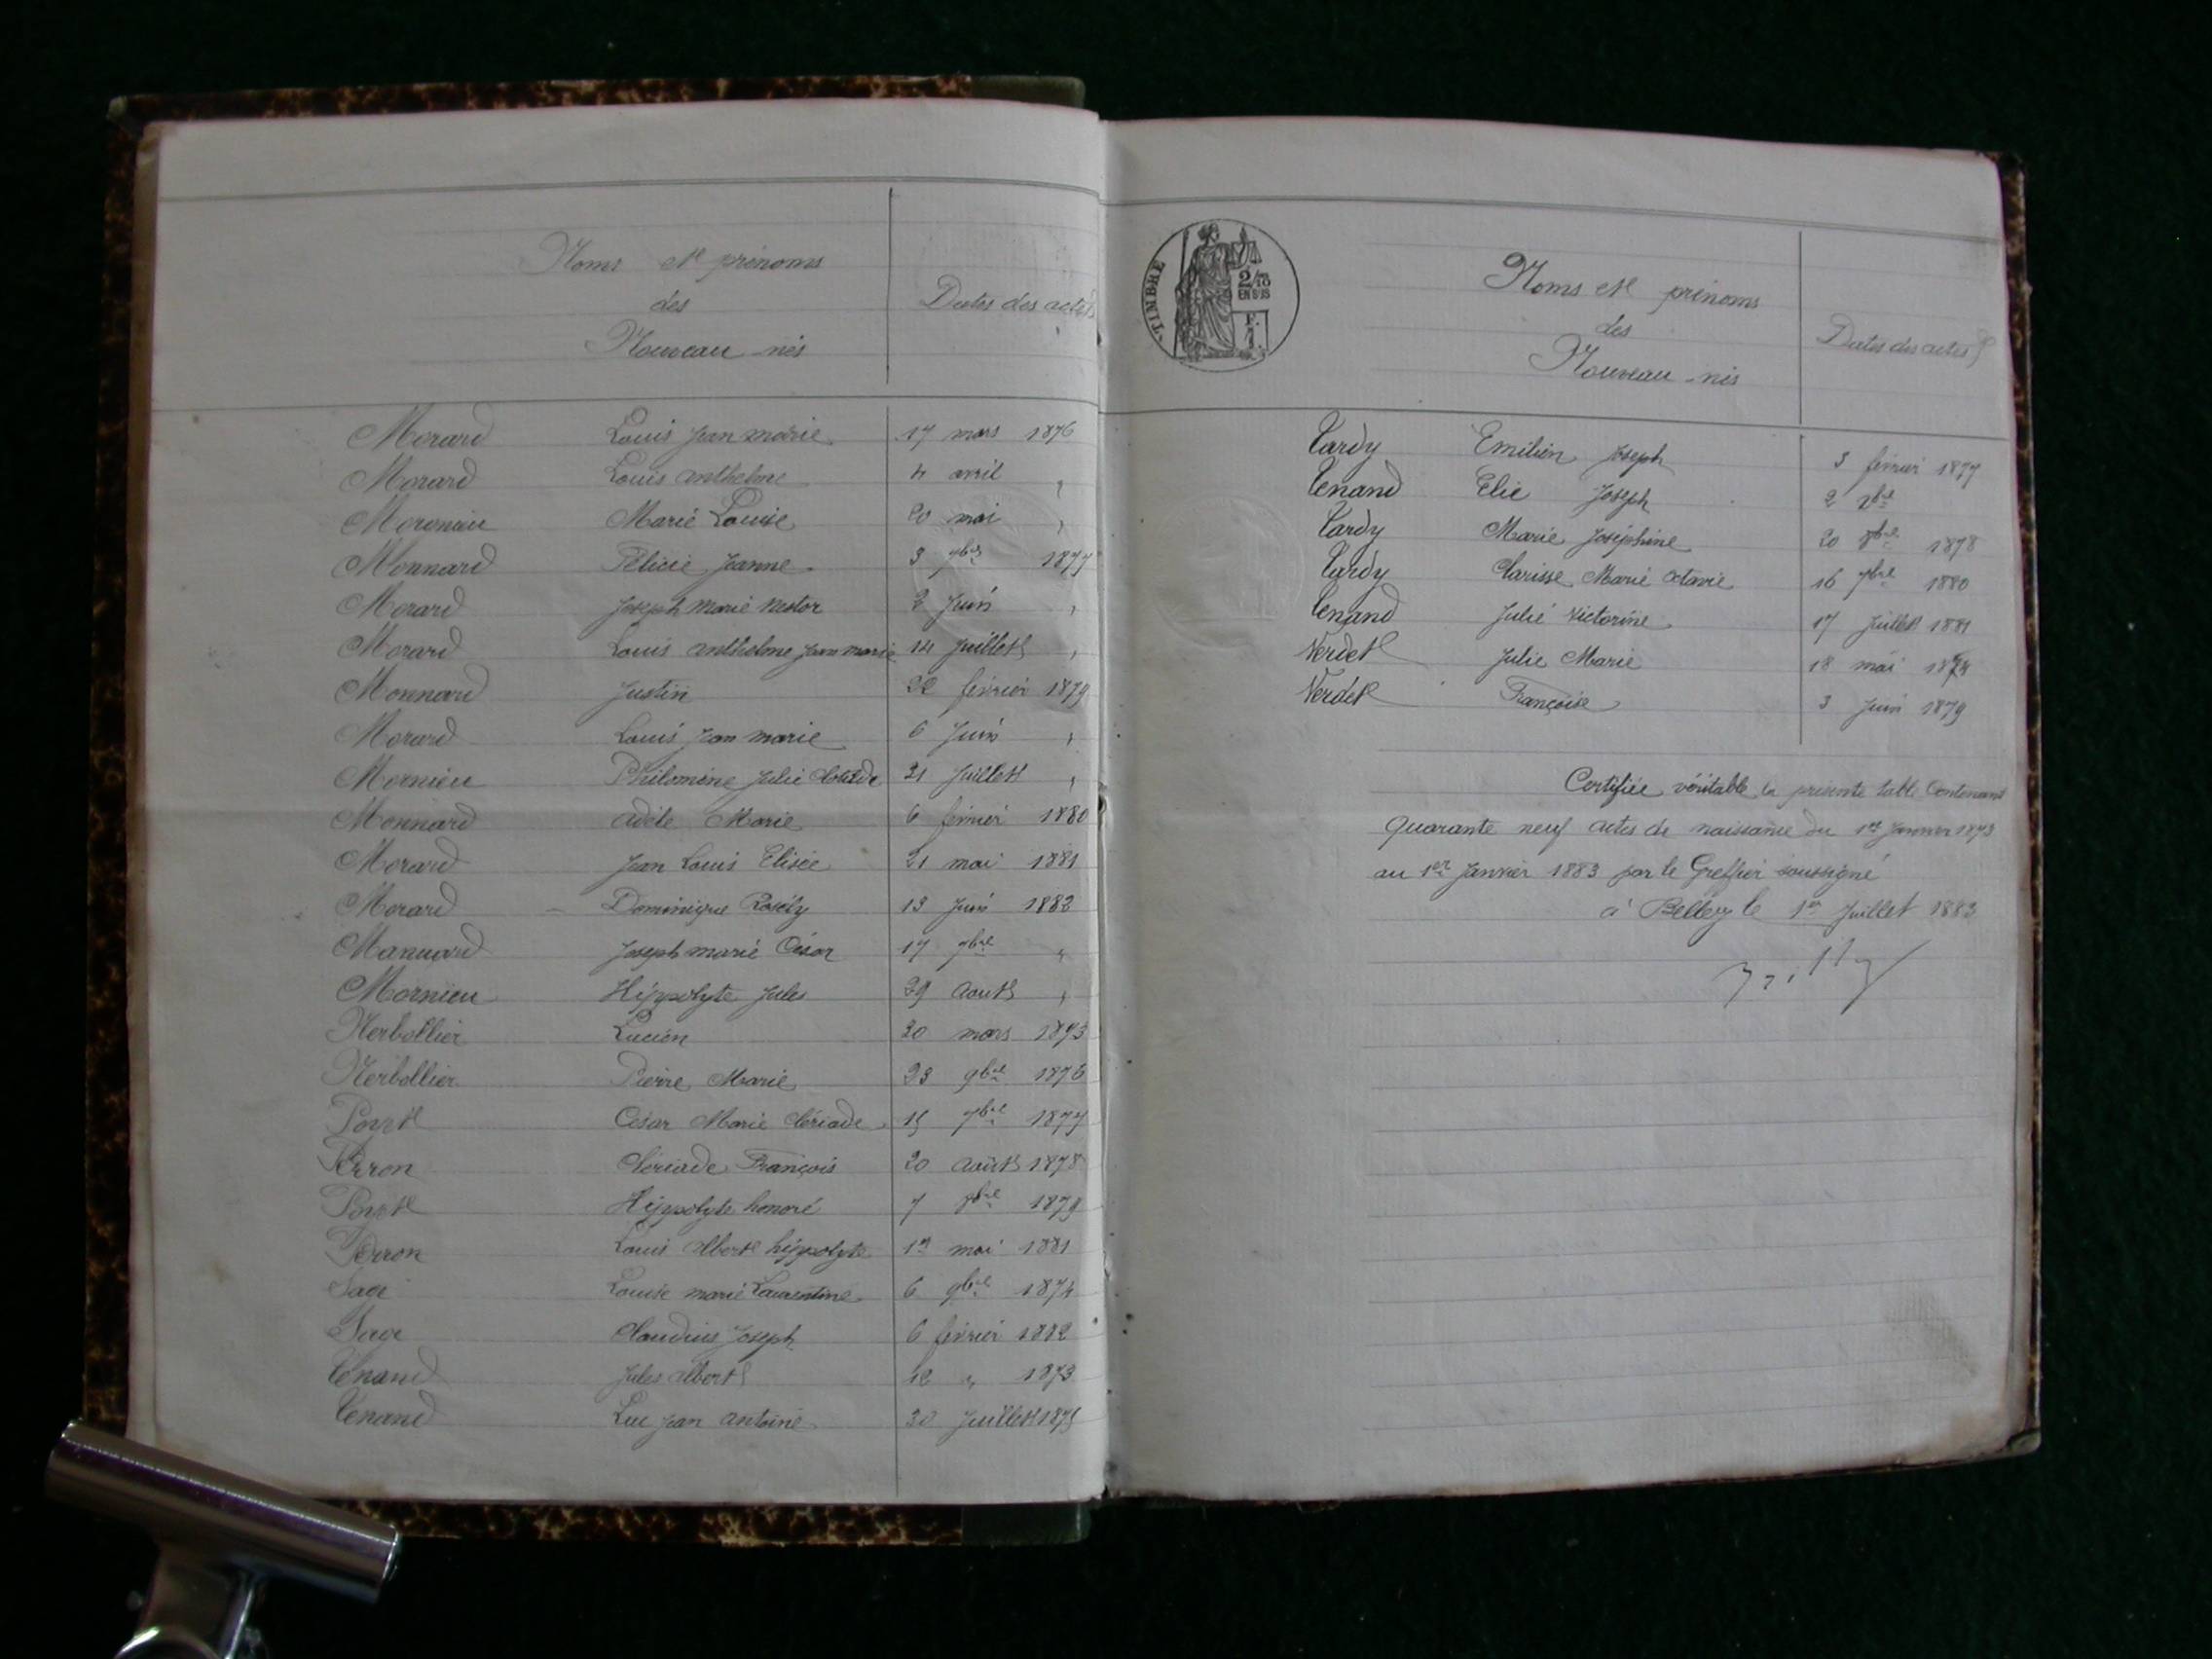 Noms et prénoms
des
Nouveau-nés
Dates des actes
Morard Louis Jean marie 17 mars 1876
Morard Louis anthelme 4 avril "
Mornieu Marie Louise 20 mai "
Monnard Félicie Jeanne 3 1877
Morard Joseph Marie Nestor 2 Juin "
Morard Louis anthelme Jean marie 14 Juillet "
Monnard Justin 22 février 1879
Morard Louis Jean marie 6 Juin "
Mornieu Philomène Julie Clotilde 21 Juillet "
Monnard adèle Marie 6 février 1880
Morard Jean Louis Elisée 21 mai 1881
Morard Dominique 13 Juin 1882
Manuard Joseph marie César 17 7bre "
Mornieu Hippolyte Jules 29 Aout "
Nerbollier Lucien 20 mars 1873
Nerbollier Pierre Marie 23 9bre 1876
César Marie Clériade 15 7bre 1877
Perron Clériade François 20 Août 1878
Hippolyte honoré 7 1879
Perron Louis albert hippolyte 1er mai 1881
Sage Louise marie Laurentine 6 9bre 1874
Sage Claudius Joseph 6 février 1882
Tenand Jules albert 12 " 1873
Tenand Luc Jean antoine 30 Juillet 1875
TIMBRE
2/10
EN SUS
F.
1.
Noms et prénoms
des
Nouveau-nés
Dates des actes
Tardy Emilien Joseph 3 février 1877
Tenand Elie Joseph 2
Tardy Marie Joséphine 20 1878
Tardy Clarisse Marie Octavie 16 7bre 1880
Tenand Julie Victorine 17 Juillet 1881
Verdet Julie Marie 18 mai
Verdet Françoise 3 Juin 1879
Certifiée véritable la présente table Contenant
quarante neuf actes de naissance du 1er Janvier 1873
au 1er Janvier 1883 par le Greffier soussigné
à Belley le 1er Juillet 1883